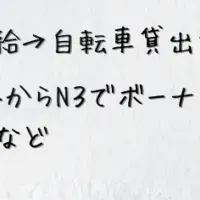 給→自転車貸出
からN3でボーナ
など